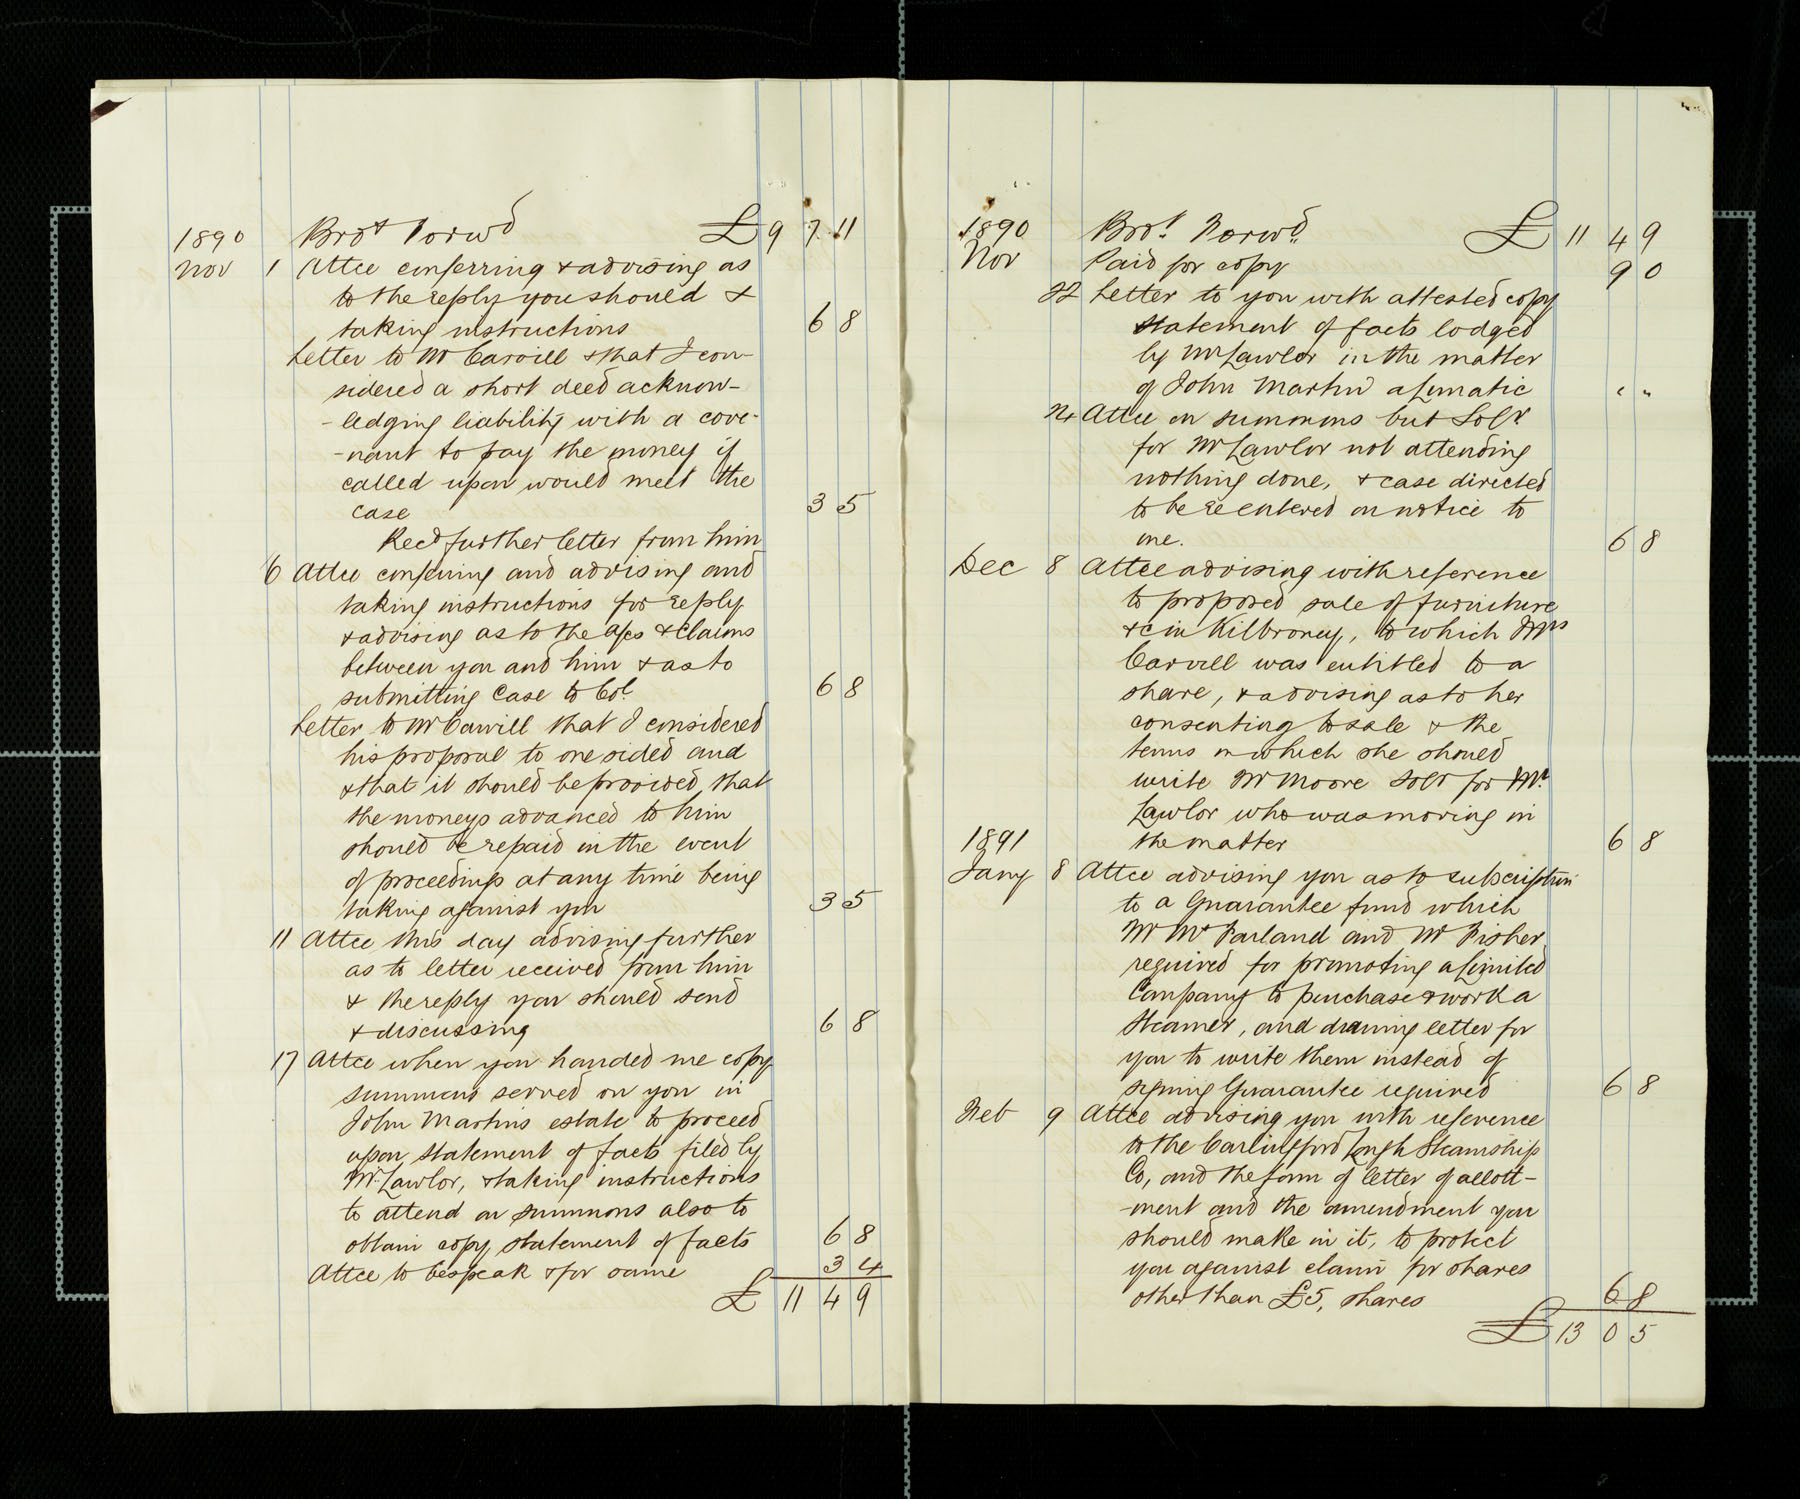 1890 Brot Forwd £ 9 7 11
Nov 1 Attce conferring & advising as
to the reply you should &
taking instructions 6 8
Letter to Mr Carvill that I con-
sidered a short deed acknow-
-ledging liability with a cove-
-nant to pay the money if
called upon would meet the
case 3 5
Recd further letter from him
6 Attce conferring and advising and
taking instructions for reply
& advising as to the a/cs & claims
between you and him & as to
submitting Case to Col.
6 8
Letter to Mr Carvill that I considered
his proposal to one sided and
& that it should be provided, that
the moneys advanced to him
should be repaid in the event
of proceedings at any time being
taking against you 3 5
11 Attce this day advising further
as to letter received from him
& the reply you should send
& discussing 6 8
17 Attce when you handed me copy
summons served on you in
John Martins estate to proceed
upon statement of facts filed by
Mr Lawlor, & taking instructions
to attend on summons also to
obtain copy statement of facts 6 8
Attce to bespeak & for same 3 4
£ 11 4 9
1890 Brot. Forwd. £ 11 4 9
Nov Paid for copy 9 0
22 Letter to you with attested copy
statement of facts lodged
by Mr Lawlor in the matter
of John Martin a lunatic " "
Attce on summons but Solr
for Mr Lawlor not attending
nothing done, & case directed
to be re entered on notice to
me. 6 8
Dec 8 Attce advising with reference
to proposed sale of furniture
&c in Kilbroney, to which Mrs
Carvill was entitled to a
share, & advising as to her
consenting to sale & the
terms on which she should
write Mr Moore Solr for Mr.
Lawlor who was moving in
the matter 6 8
1891
Jany 8 Attce advising you as to subscription
to a Guarantee fund which
Mr Mc Farland and Mr Fisher
required for promoting a limited
Company to purchase & work a
Steamer, and drawing letter for
you to write them instead of
signing Guarantee required 6 8
Feb 9 Attce advising you with reference
to the Carlingford Lough Steamship
Co, and the form of letter of allott-
-ment and the amendment you
should make in it, to protect
you against claim for shares
other than £5, shares 6 8
£ 13 0 5